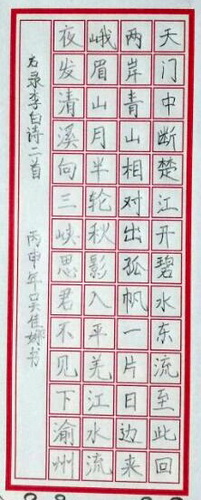 天门中断楚江开碧水东流至此回
两岸青山相对出孤帆一片日边来
峨眉山月半轮秋影入平羌江水流
夜发清溪向三峡思君不见下渝州
右录李白诗二首
丙申年吴佳娜书